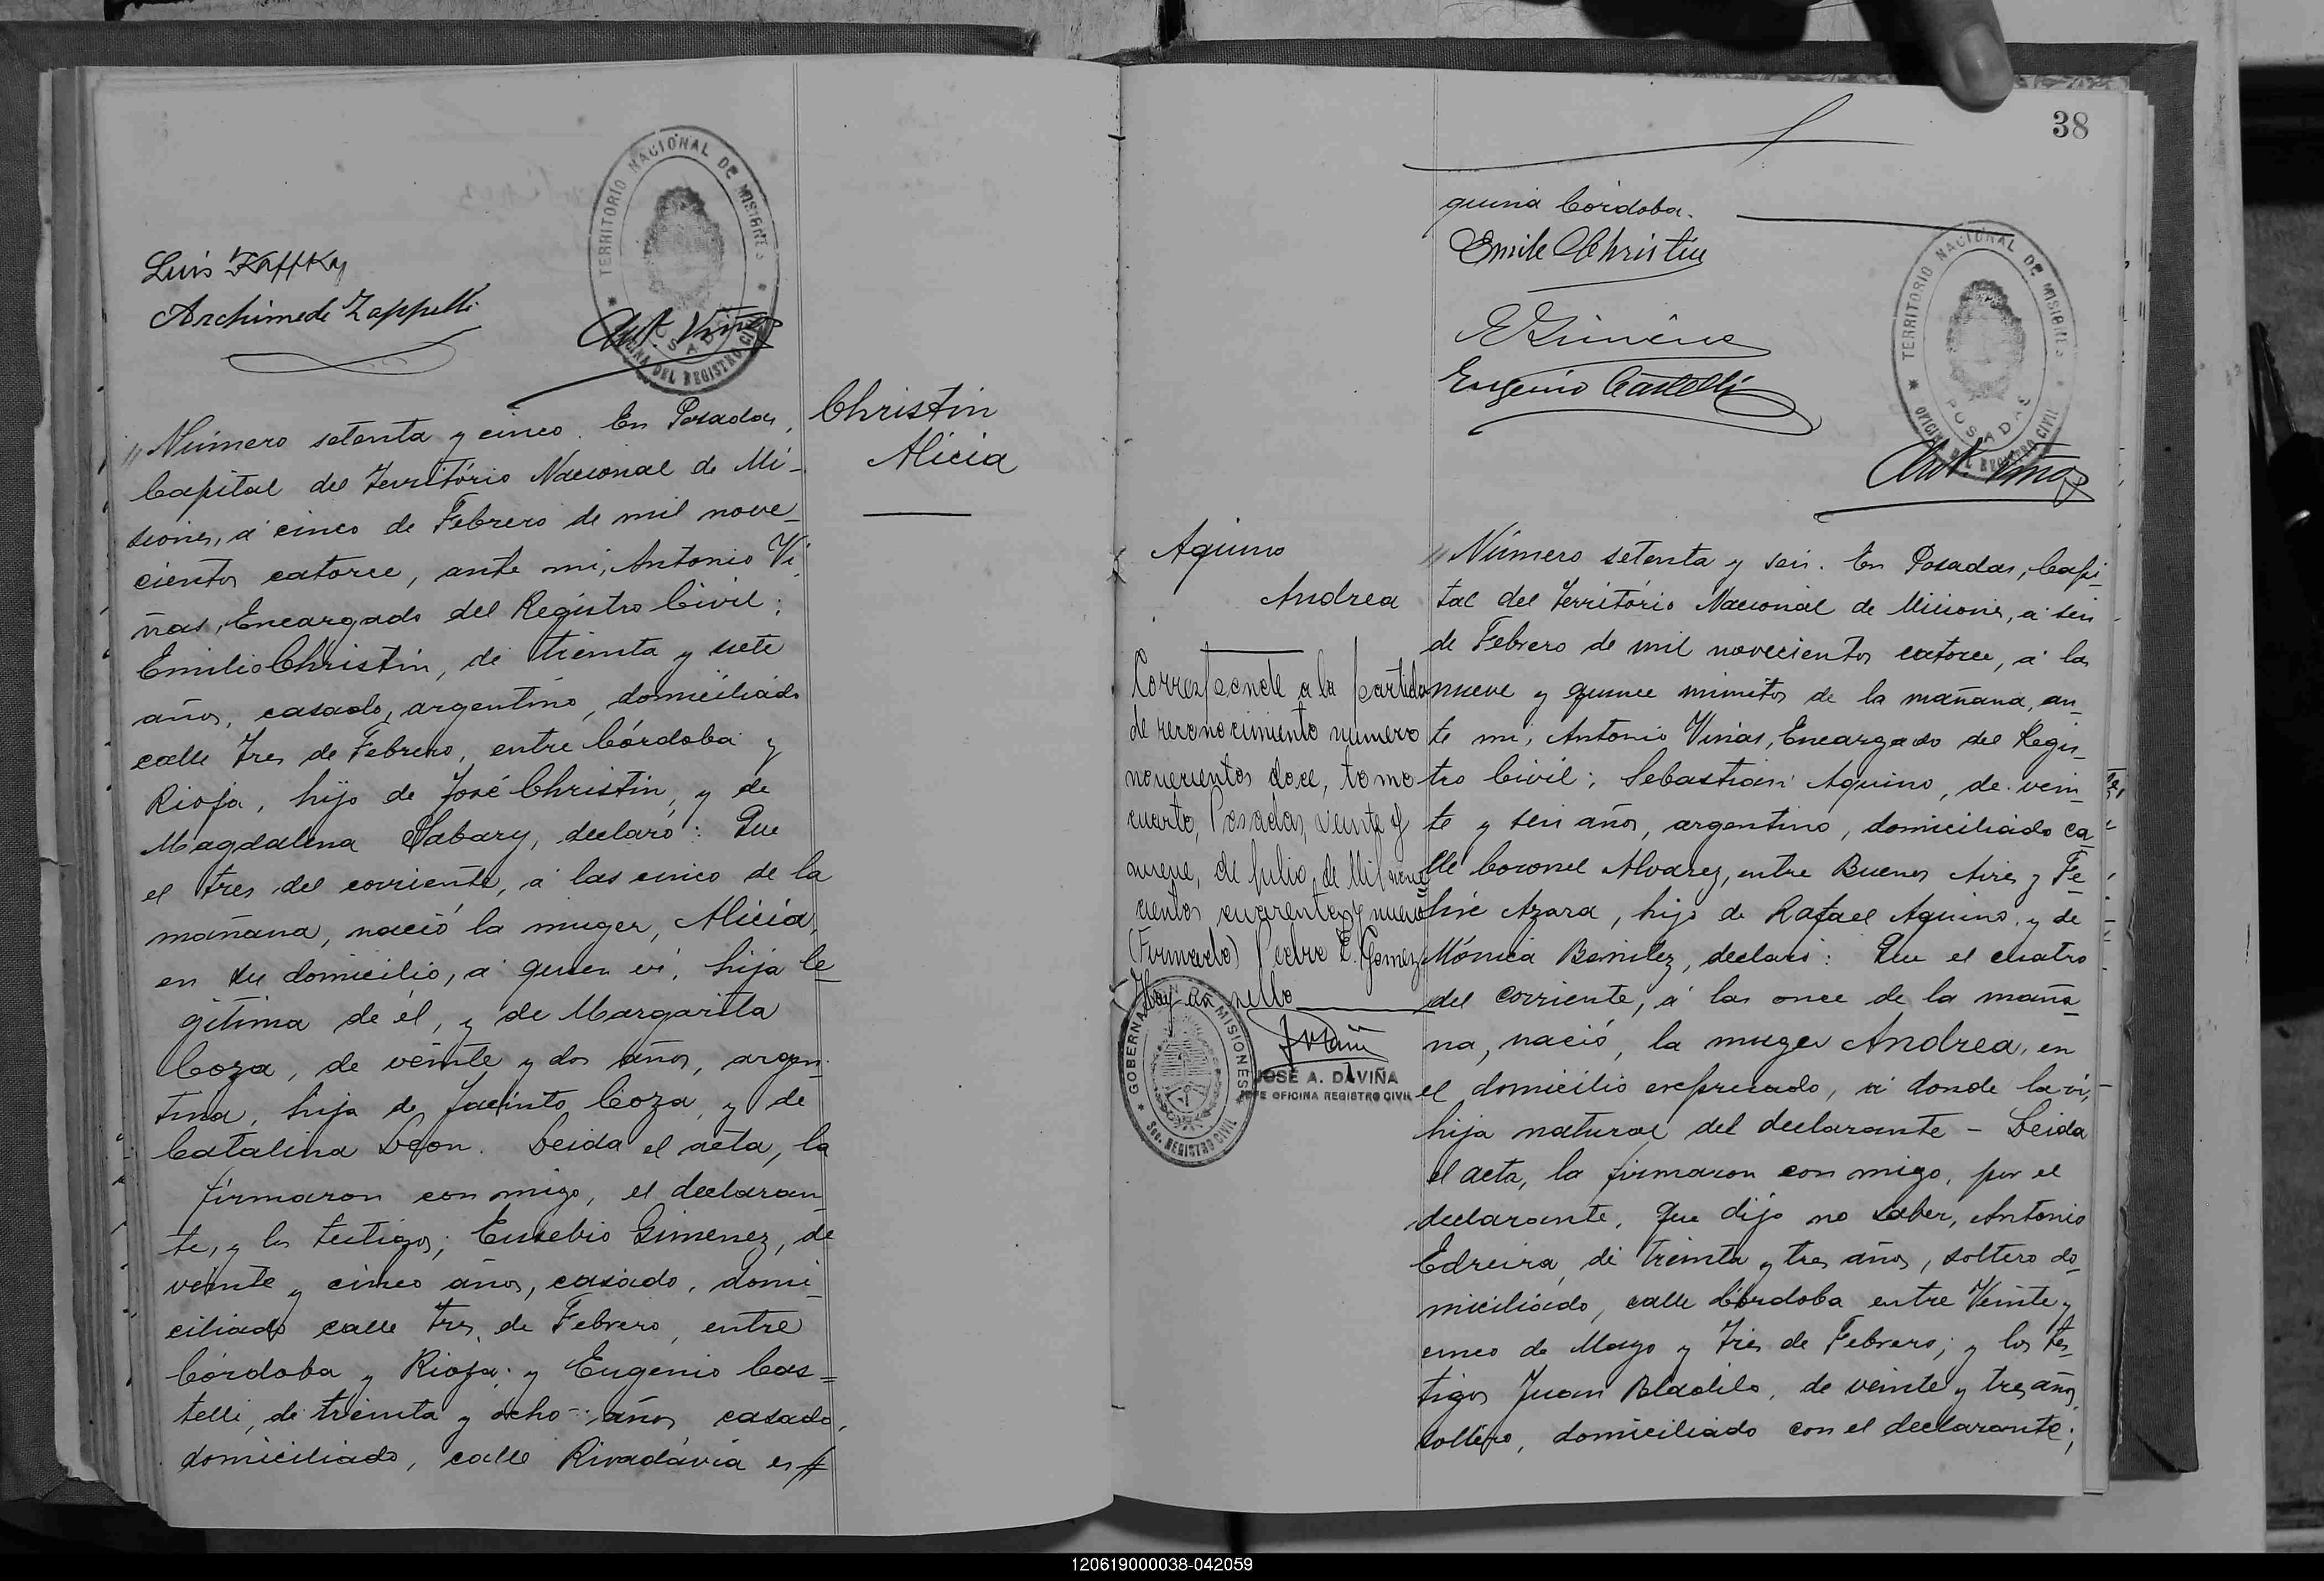 TERRITORIO NACIONAL DE MISIONES
POSADAS
OFICINA DEL REGISTRO CIVIL
Luis Kaffka
Archimede Zappelli
Ant. Viñas
Christin
Alicia
" Número setenta y cinco. En Posadas,
Capital del Territorio Nacional de Mi-
siones, á cinco de Febrero de mil nove-
cientos catorce, ante mi, Antonio Vi-
ñas, Encargado del Registro Civil;
Emilio Christin, de treinta y siete
años, casado, argentino, domiciliado
calle Tres de Febrero, entre Córdoba y
Rioja, hijo de José Christin, y de
Magdalena Sabary, declaró: Que
el tres del corriente, á las cinco de la
mañana, nació la muger, Alicia,
en su domicilio, á quien vi, hija le-
gítima de él, y de Margarita
Coza, de veinte y dos años, argen-
tina, hija de Jacinto Coza, y de
Catalina Leon. Leida el acta, la
firmaron con migo, el declaran-
te, y los testigos; Eusebio Gimenez, de
veinte y cinco años, casado, domi-
ciliado calle Tres de Febrero, entre
Córdoba y Rioja; y Eugenio Cas=
telli, de treinta y ocho años, casado,
domiciliado, calle Rivadavia es
38
quina Córdoba.
Emile Christin
E Gimenez
Eugenio Castelli
TERRITORIO NACIONAL DE MISIONES
POSADAS
OFICINA DEL REGISTRO CIVIL
Ant. Viñas
Aquino
Andrea
Corresponde a la partida
de reconocimiento numero
novecientos doce, tomo
cuarto, Posadas, veinte y
nueve, de Julio, de Mil nove
cientos cuarenta y nueve
(Firmado) Pedro E. Gomez
Hay un sello
GOBERNACION MISIONES
Sec. REGISTRO CIVIL
JOSÉ A. DAVIÑA
JEFE OFICINA REGISTRO CIVIL
" Número setenta y seis. En Posadas, Capi-
tal del Territorio Nacional de Misiones, á seis
de Febrero de mil novecientos catorce, á las
nueve y quince minutos de la mañana, an-
te mi, Antonio Viñas, Encargado del Regis-
tro Civil; Sebastian Aquino, de vein-
te y seis años, argentino, domiciliado ca-
lle Coronel Alvarez, entre Buenos Aires y Fe-
lix Azara, hijo de Rafael Aquino, y de
Mónica Benitez, declaró: Que el cuatro
del corriente, á las once de la maña-
na, nació, la muger Andrea, en
el domicilio expresado, á donde la vi,
hija natural del declarante – Leida
el acta, la firmaron con migo, por el
declarante, que dijo no saber, Antonio
Edreira, de treinta y tres años, soltero do-
miciliado, calle Córdoba entre Veinte y
cinco de Mayo y Tres de Febrero; y los tes-
tigos Juan Bladilo, de veinte y tres años,
soltero, domiciliado con el declarante;
120619000038-042059